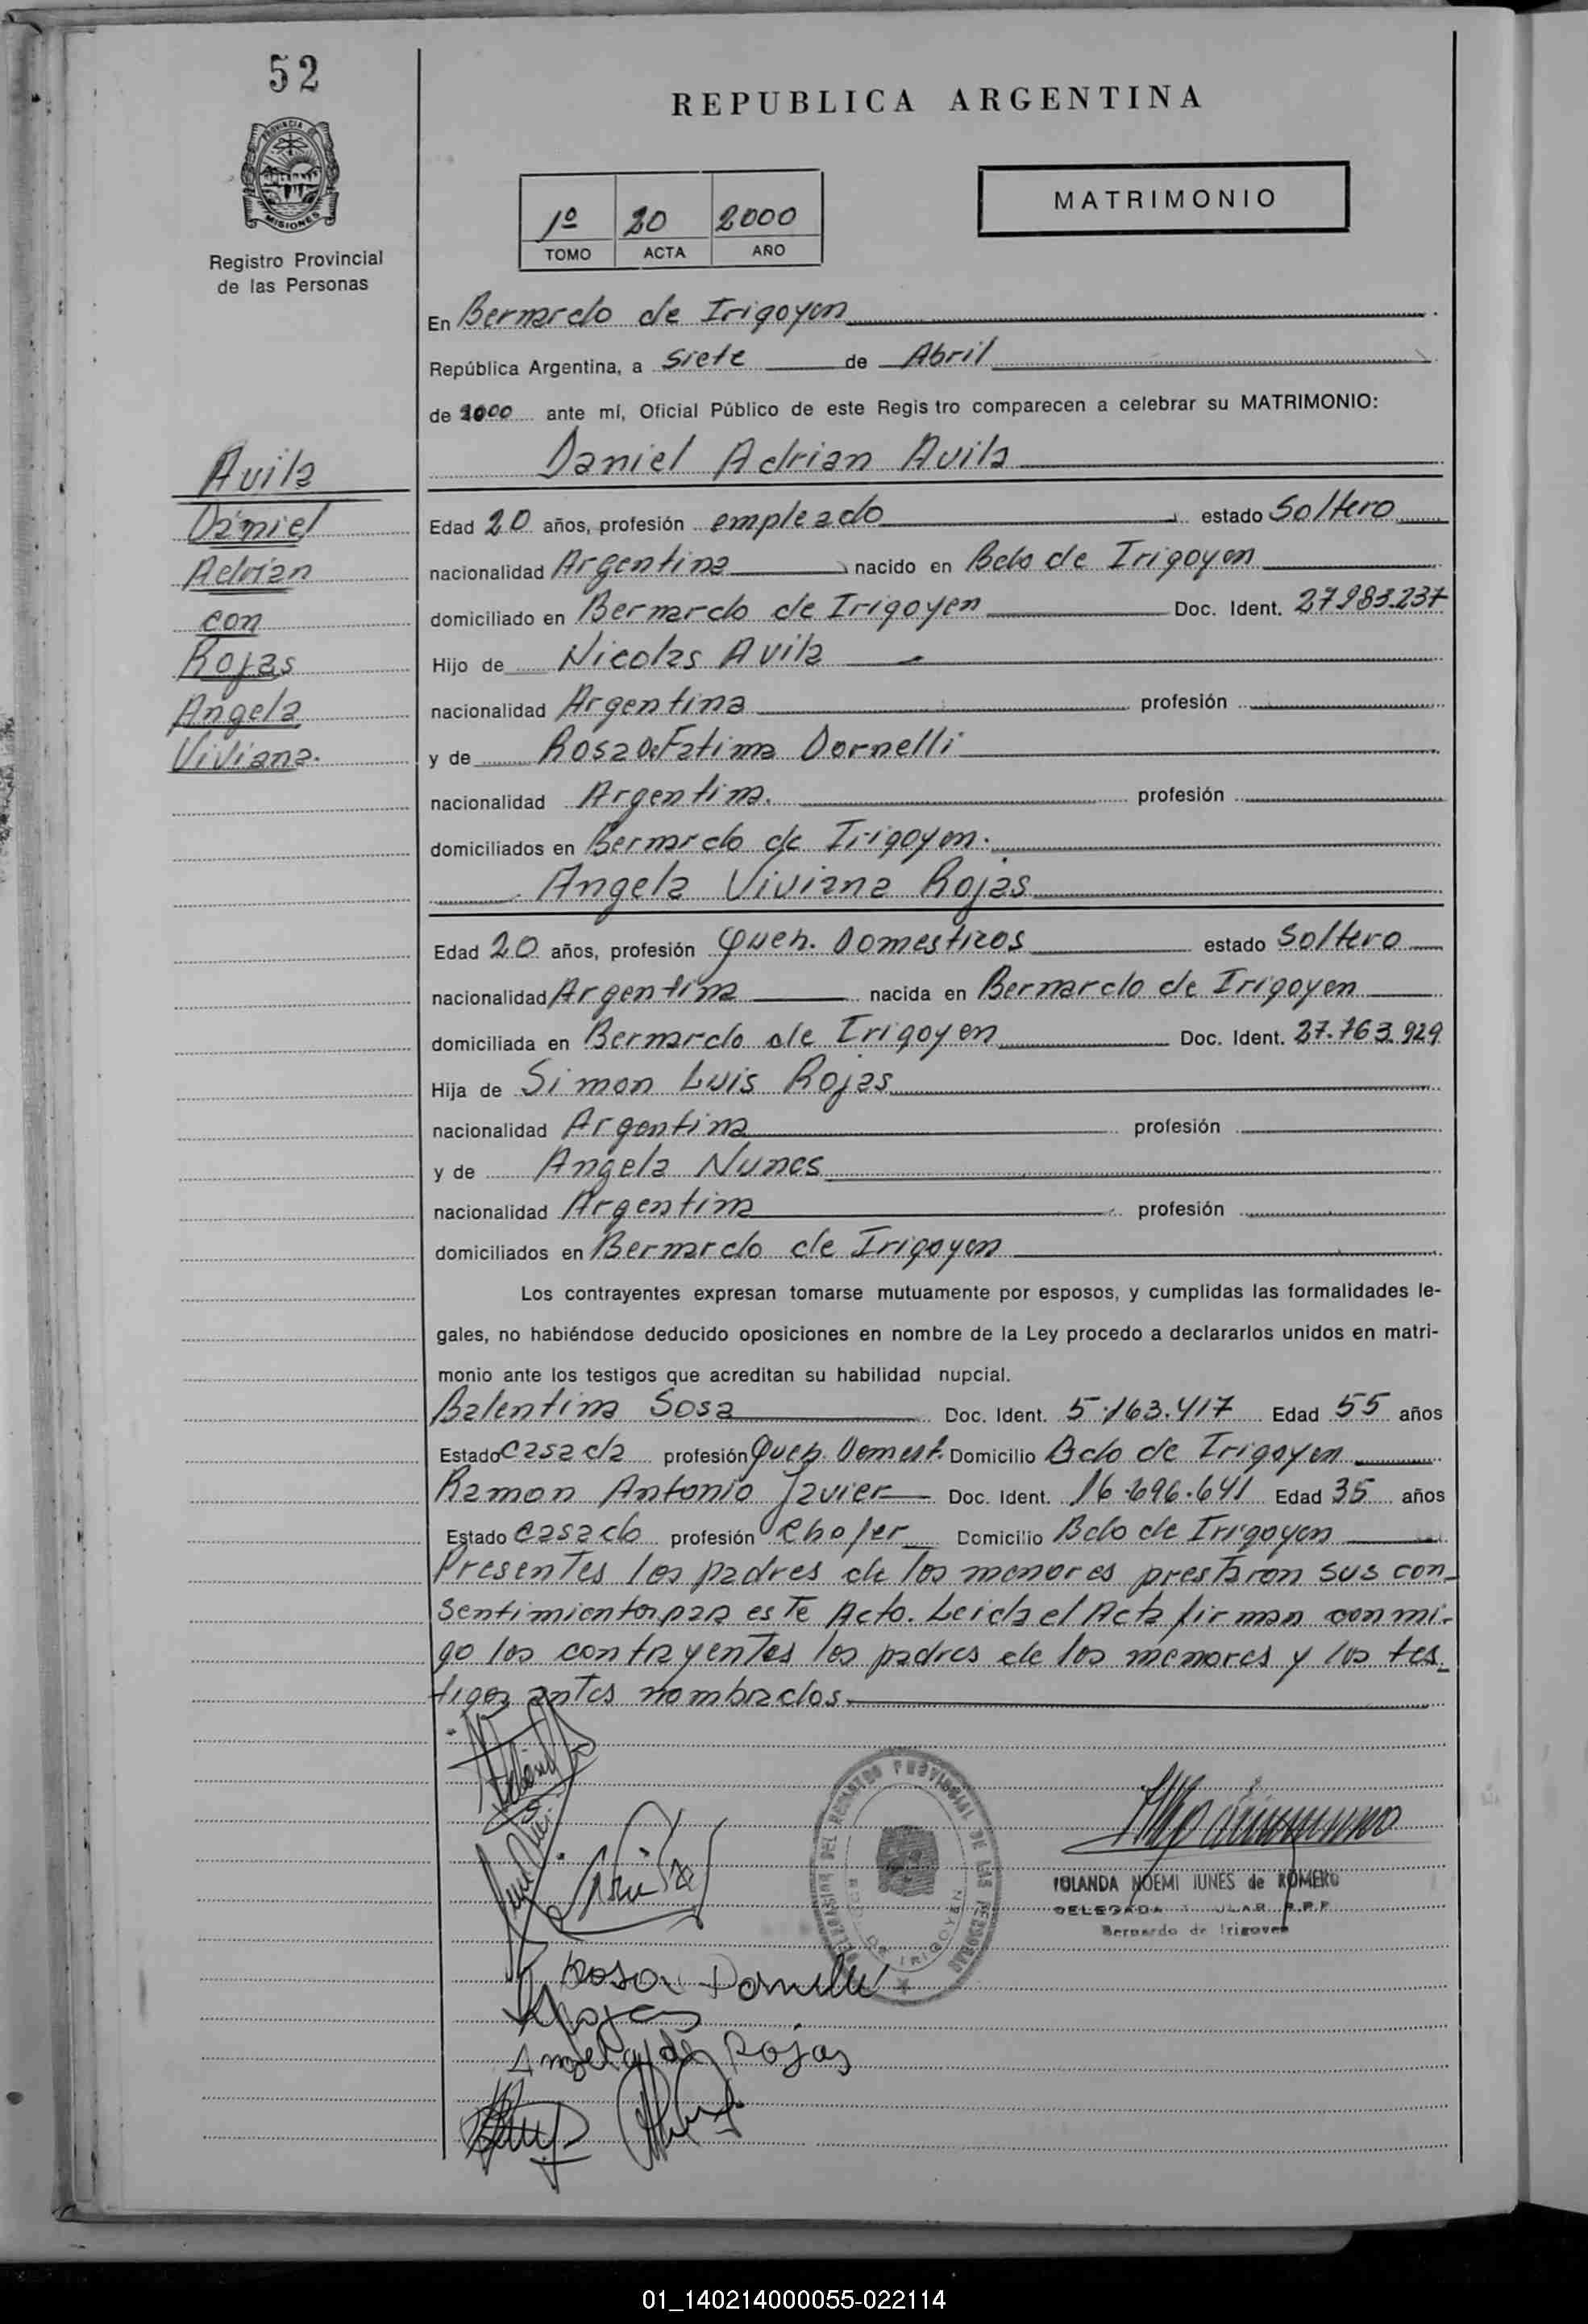 52
REPUBLICA ARGENTINA
PROVINCIA DE
MISIONES
Registro Provincial
de las Personas
1º 20 2000
TOMO ACTA AÑO
MATRIMONIO
En Bernardo de Irigoyen
República Argentina, a Siete de Abril
de 2000 ante mí, Oficial Público de este Regis tro comparecen a celebrar su MATRIMONIO:
Avila
Daniel
Adrian
con
Rojas
Angela
Viviana.
Daniel Adrian Avila
Edad 20 años, profesión empleado estado Soltero
nacionalidad Argentina nacido en Bdo de Irigoyen
domiciliado en Bernardo de Irigoyen Doc. Ident. 27.983.237
Hijo de Nicolas Avila
nacionalidad Argentina profesión
y de Rosa De Fatima Dornelli
nacionalidad Argentina. profesión
domiciliados en Bernardo de Irigoyen.
Angela Viviana Rojas
Edad 20 años, profesión Queh. Domesticos estado Soltero
nacionalidad Argentina nacida en Bernardo de Irigoyen
domiciliada en Bernardo de Irigoyen Doc. Ident. 27.763.929
Hija de Simon Luis Rojas
nacionalidad Argentina profesión
y de Angela Nunes
nacionalidad Argentina profesión
domiciliados en Bernardo de Irigoyen
Los contrayentes expresan tomarse mutuamente por esposos, y cumplidas las formalidades le-
gales, no habiéndose deducido oposiciones en nombre de la Ley procedo a declararlos unidos en matri-
monio ante los testigos que acreditan su habilidad nupcial.
Balentina Sosa Doc. Ident. 5.163.417 Edad 55 años
Estado Casada profesión Queh. Domest. Domicilio Bdo de Irigoyen
Ramon Antonio Javier Doc. Ident. 16.696.641 Edad 35 años
Estado Casado profesión Chofer Domicilio Bdo de Irigoyen
Presentes los padres de los menores prestaron sus con-
sentimientos para este Acto. Leida el Acta firman conmi-
go los contrayentes los padres de los menores y los tes-
tigos antes nombrados.
DELEGACION DEL REGISTRO PROVINCIAL DE LAS PERSONAS
BDO. DE IRIGOYEN
IOLANDA NOEMI IUNES de ROMERO
DELEGADA R.P.P.
Bernardo de Irigoyen
Rosa Dornelli
Rojas
Angela de Rojas
01_140214000055-022114